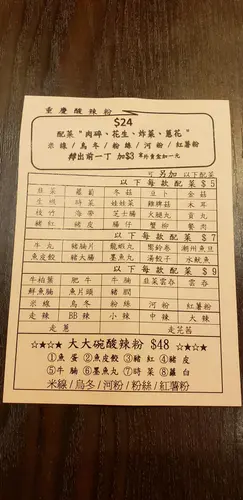 重慶酸辣粉
$24
配菜 "肉碎、花生、炸菜、蔥花"
米線/烏冬/粉絲/河粉/紅薯粉
轉出前一丁 加$3 拿外賣盒加一元
可另加 以下配菜
以下每款配菜 $5
韭菜 蘿蔔 冬菇 豆卜 金菇
生根 時菜 娃娃菜 雞脾菇 木耳
枝竹 海帶 芝士腸 火腿丸 貢丸
豬紅 豬皮 腸仔 蟹柳 豬肉
以下每款配菜 $7
牛丸 豬腩片 龍蝦丸 闊鈴卷 潮州魚旦
魚皮餃 豬大腸 墨魚丸 獅子狗 水魷魚
以下每款配菜 $9
牛柏葉 肥牛 牛腩 韭菜雲吞 雲吞
鮮魚腩 魚片頭 豬膶
米線 烏冬 粉絲 河粉 紅薯粉
走辣 BB辣 小辣 中辣 大辣
走蔥 走芫茜
☆★☆★ 大大碗酸辣粉 $48 ☆★☆★
①魚蛋 ②魚皮餃 ③豬紅 ④豬皮
⑤牛腩 ⑥墨魚丸 ⑦時菜 ⑧蘿白
米線/烏冬/河粉/粉絲/紅薯粉